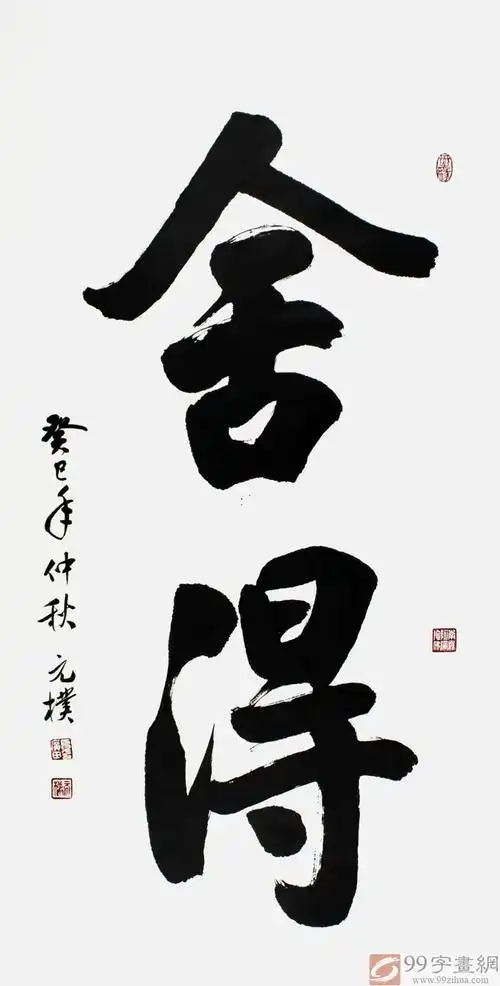 舍得
癸巳年仲秋 元樸
99字畫網
www.99zihua.com